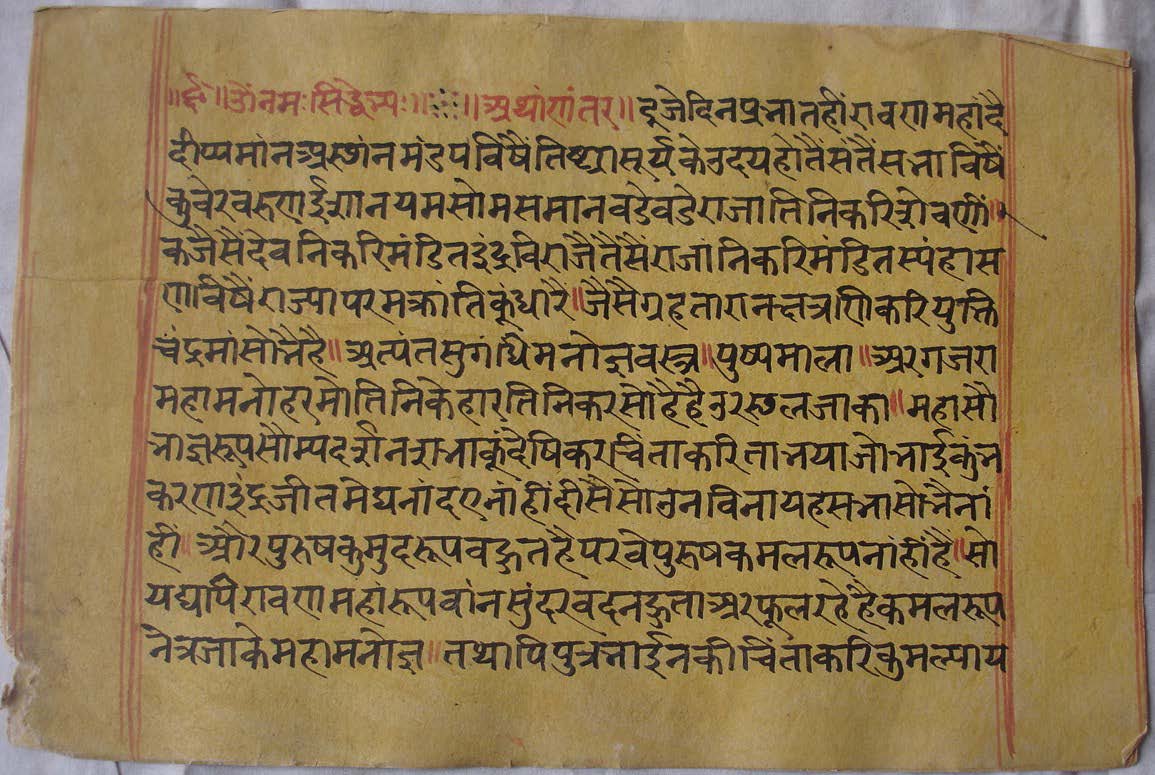 ॥र्द०॥ॐनमःसिद्धेभ्यः॥ ॥अथांणांतर॥दूजेदिनप्रभातहींरावणमहादै
दीप्यमांनअस्थांनमंडपविषैंतिष्ठ्यासूर्यकेउदयहोतैंसंतैंसभाविषैं
कुवेरवरुणईशानयमसोमसमानवडेवडेराजातिनिकरिसेवणीं॥
कजैसैंदेवनिकरिमंडितइंद्रविराजैतैसैंराजांनिकरिमंडितस्यंहास
णविषैंराज्यापरमक्रांतिकूंधारैं॥जैसैग्रहतारानक्षत्रणिकरियुक्ति
चंद्रमांसोभैहै॥अत्यंतसुगंधिमनोज्ञवस्त्र॥पुष्पमाला॥अरगजरा
महामनोहरमोतिनिकेहारतिनिकरसोहैहैउरस्थलजाका॥महासौ
भाज्ञरूपसौम्पदर्शनसभाकूंदेषिकरचिंताकरिताभयाजोभाईकुंभ
करणइंद्रजीतमेघनांदएनांहींदीसैसोउनविनायहसभासोभैनां
हीं॥औरपुरुषकुमुदरूपवहुतहैपरवेपुरुषकमलरूपनांहींहै॥सो
यद्यपिरावणमहांरूपवांनसुंदरवदनहुताअरफूलरहेहैकमलरूप
नेत्रजाकेमहामनोज्ञ॥तथापिपुत्रभाईनकीचिंताकरिकुमलाय